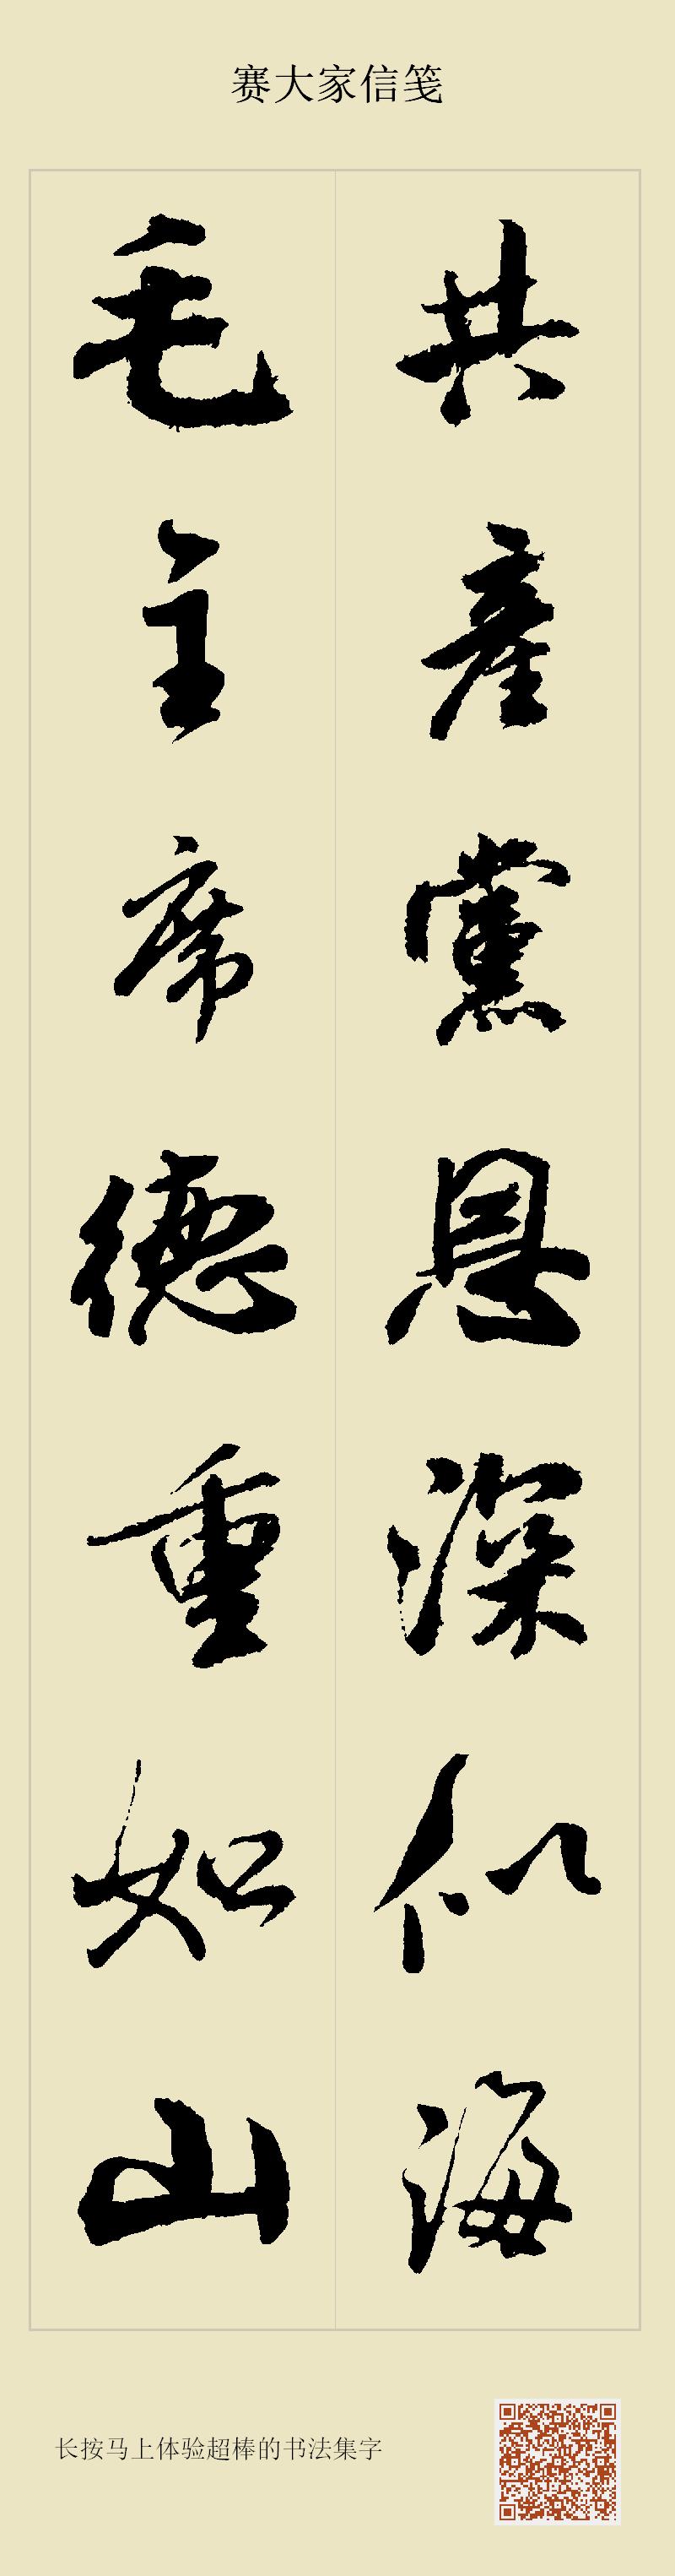 赛大家信笺
共產黨恩深似海
毛主席德重如山
长按马上体验超棒的书法集字